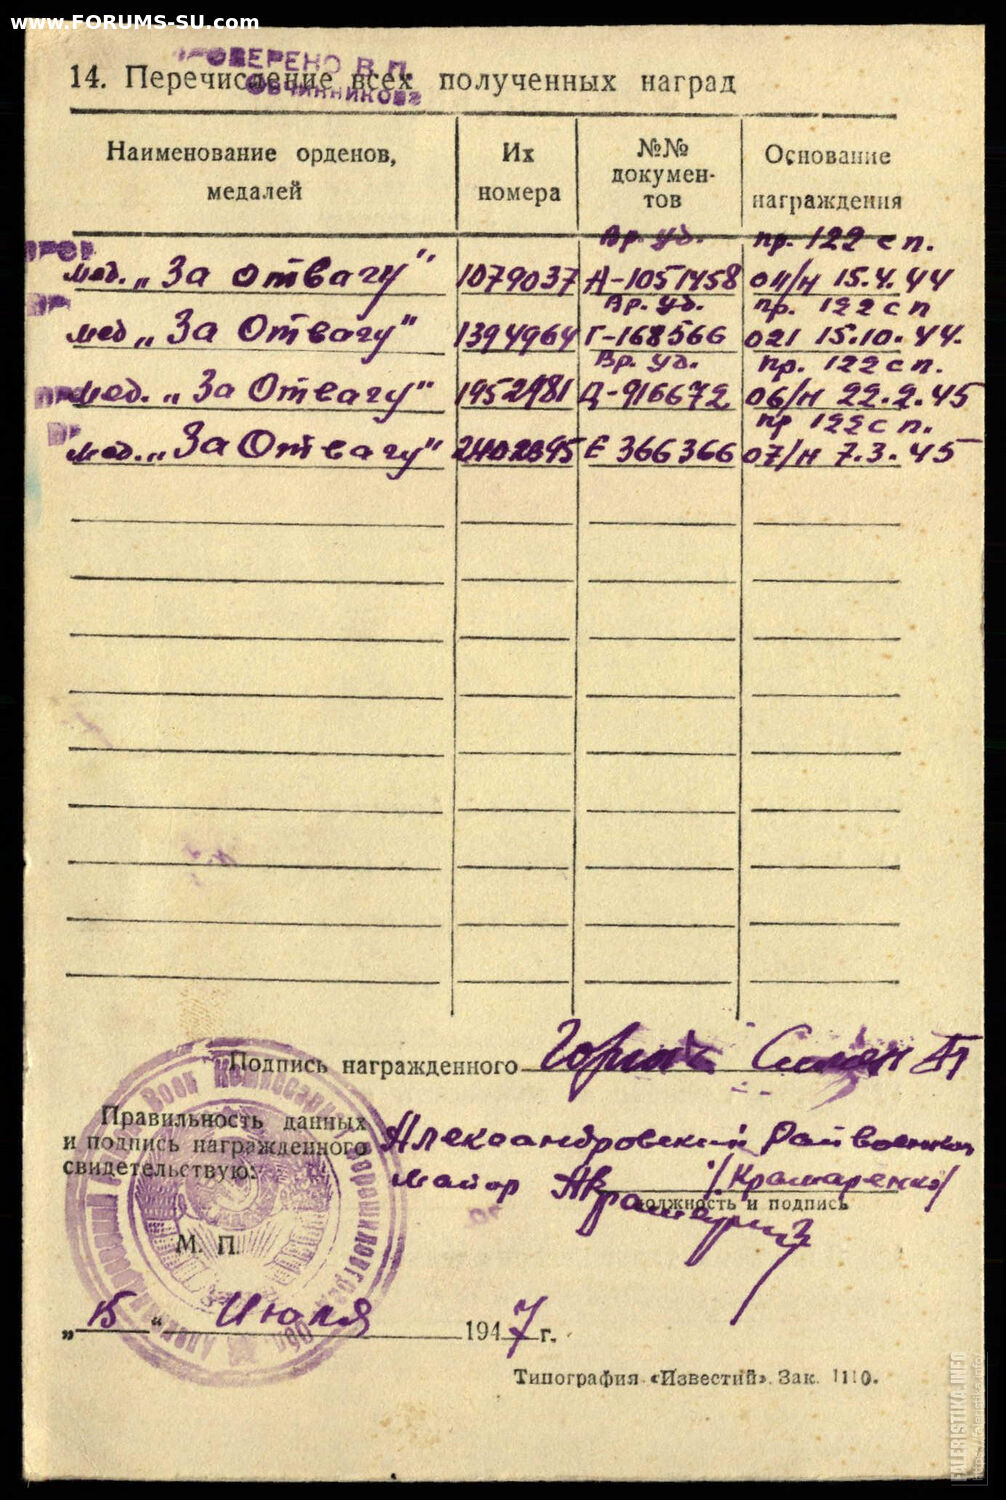 www.FORUMS-SU.com
ПРОВЕРЕНО В.П.
ОВЧИННИКОВ
14. Перечисление всех полученных наград
Наименование орденов, медалей
Их номера
№№ докумен-тов
Основание награждения
Вр. уд. пр. 122 с п.
мед. „За отвагу" 1079037 А-1051458 011/н 15.4.44
Вр. уд. пр. 122 с п
мед „За Отвагу" 1394964 Г-168566 021 15.10.44.
Вр. уд. пр. 122 с п.
мед. „За Отвагу" 1952981 Д-916672 06/н 22.2.45
пр 122 с п.
мед. „За Отвагу" Е 366366 07/н 7.3.45
Подпись награжденного
Правильность данных
и подпись награжденного
свидетельствую:
Александровский Райвоенком
майор /Крамаренко/
должность и подпись
М. П.
„15" Июля 1947 г.
Типография «Известий». Зак. 1110.
FALERISTIKA.INFO